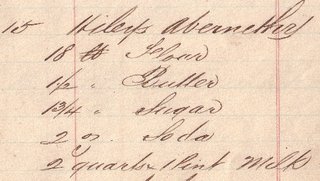 15 Abernethy
18 ℔ Flour
1½ " Butter
1¾ " Sugar
2 oz Soda
2 quarts 1 Pint Milk